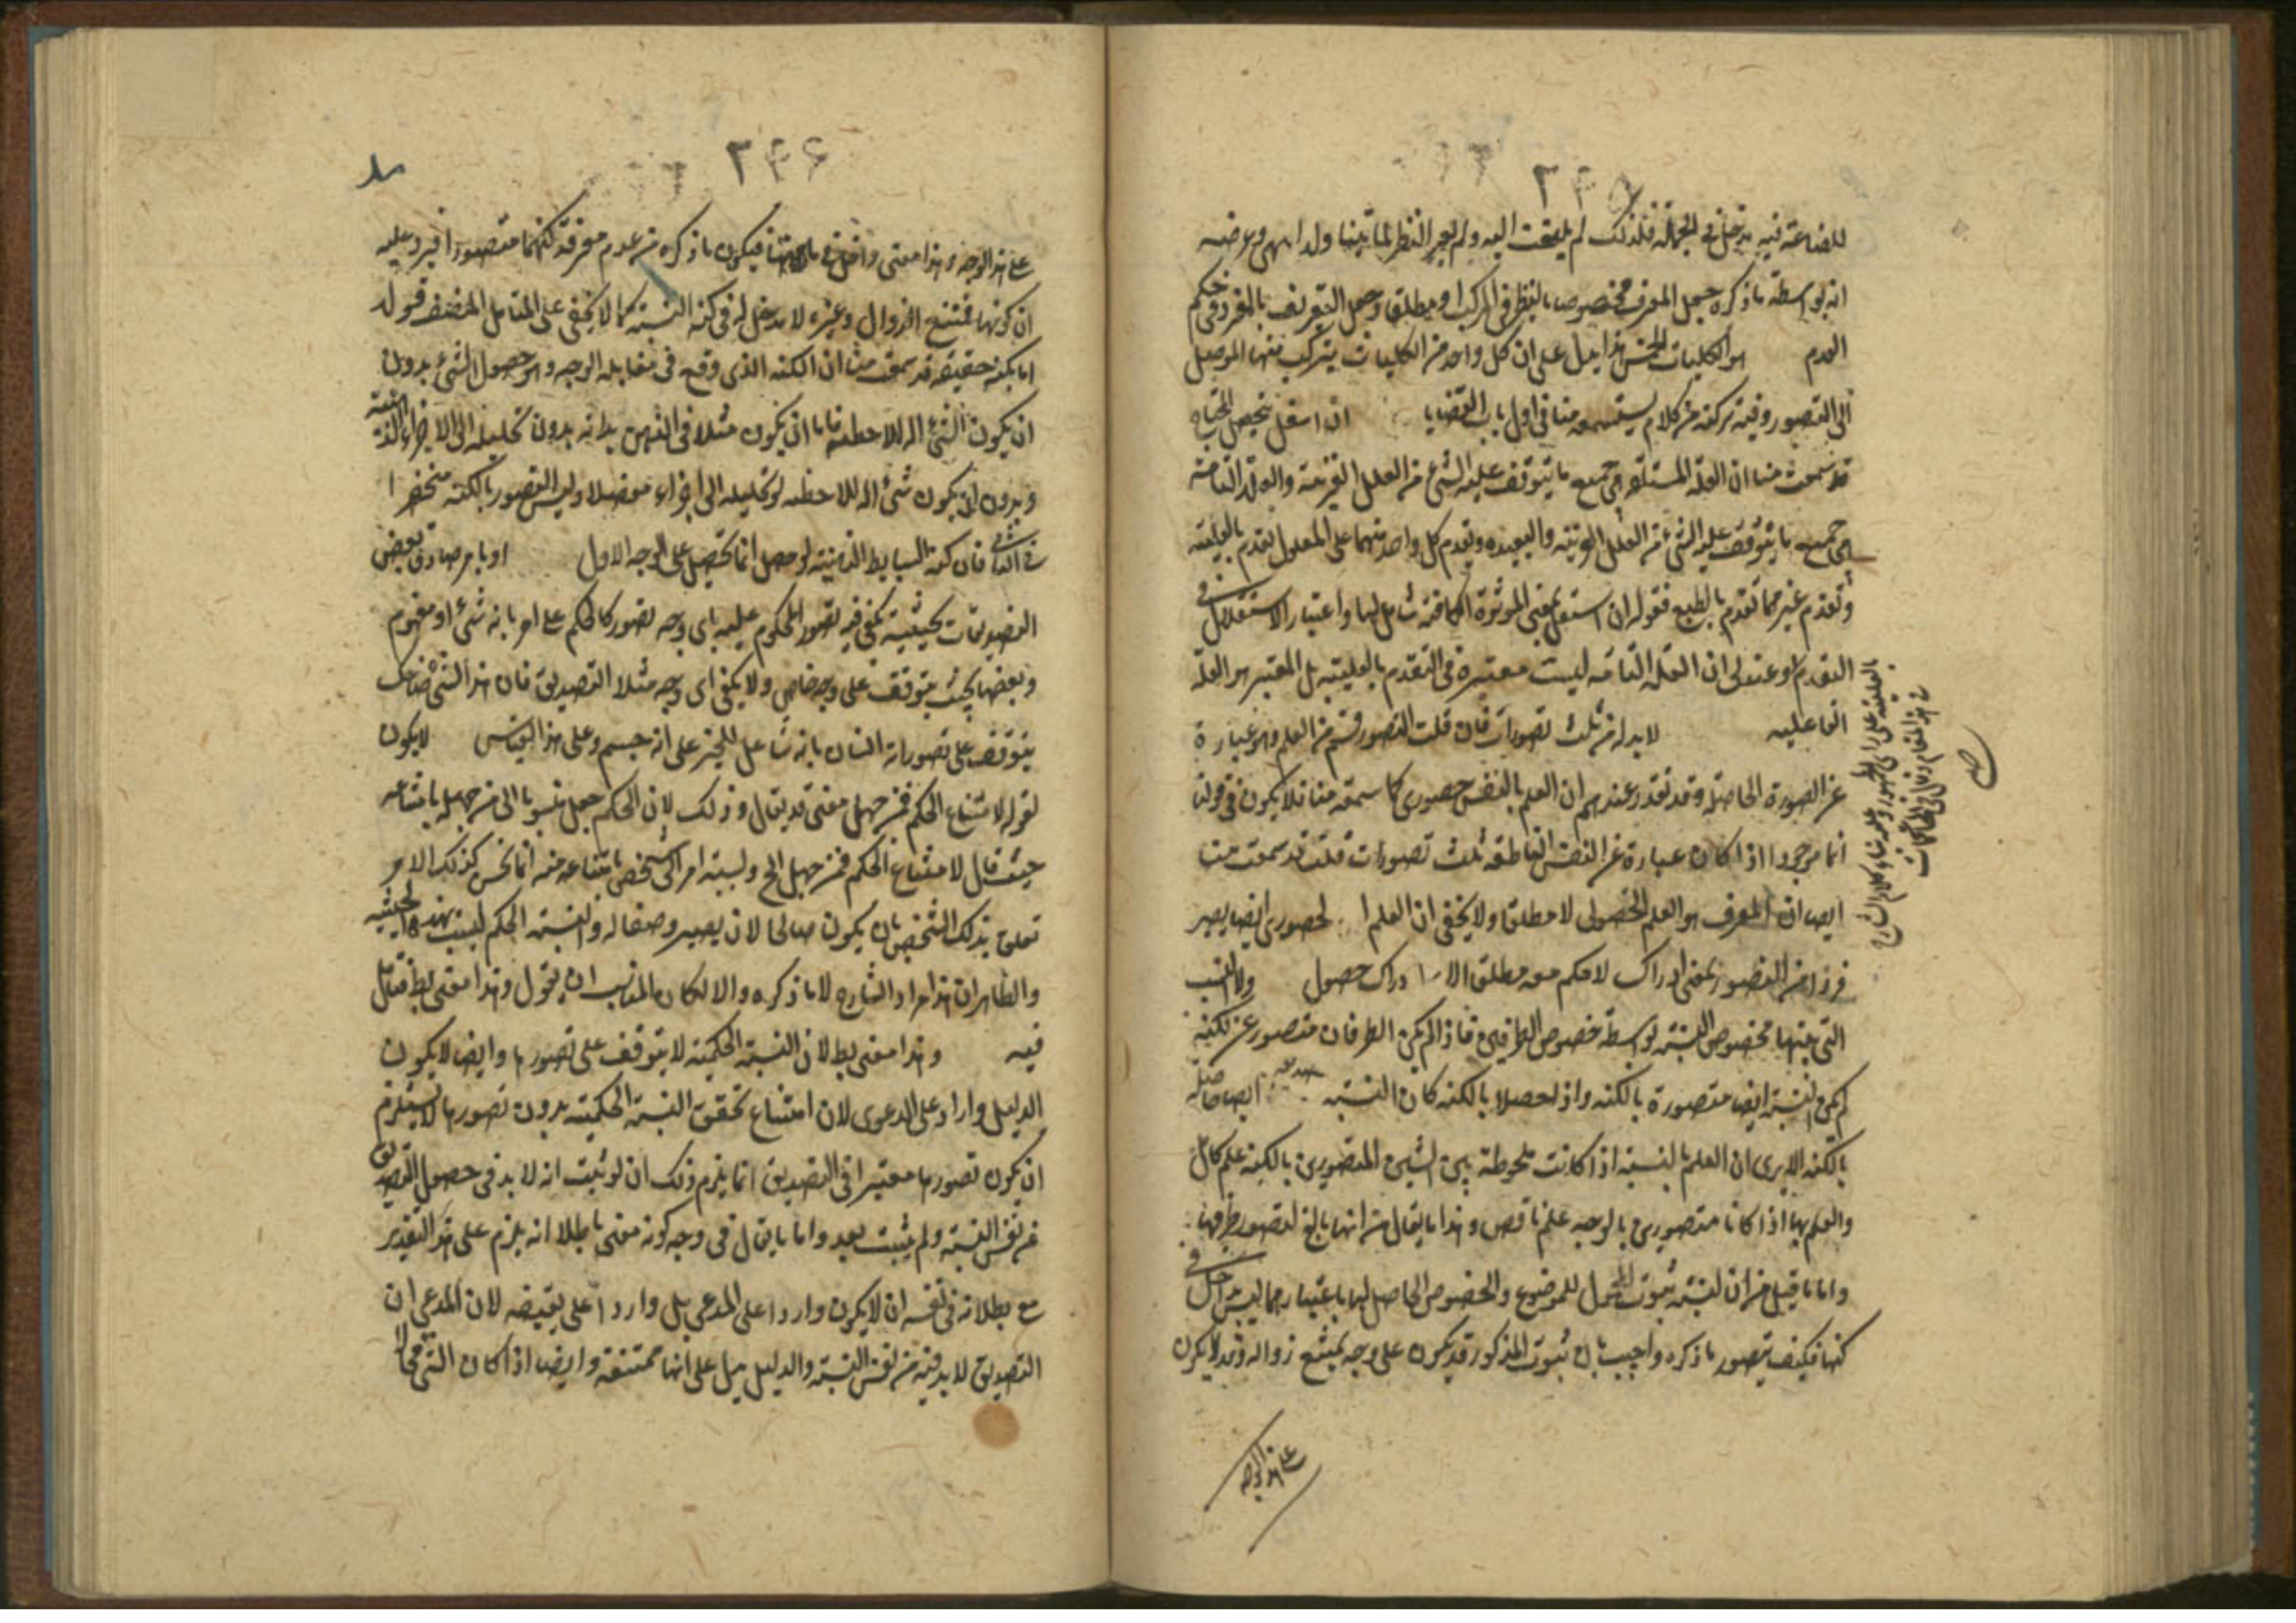 ٢٤٥
للصناعة فيه مدخل في الجملة فلذلك لم يلتفت اليه ولم يعبر النظر
انه بواسطة ما ذكره جعل المعرف مخصوصا بالنظر في المركب او مطلقا وجعل التعريف بالمفرد في حكم
العدم هو الكليات الخمس هذا يدل على ان كل واحد من الكليات يتركب منها الموصل
الى التصور وفيه تركه من كلام يستسمعه منا في اول باب القضايا ان استقل بتحصيل
قد سمعت منا ان العلة المستقلة هي جميع ما يتوقف عليه الشئ من العلل القريبة والعلة التامة
هي جميع ما يتوقف عليه الشئ من العلل القريبة والبعيدة وتقدم كل واحد منهما على المعلول تقدم بالعلية
وتقدم غيرهما تقدم بالطبع فقوله ان استقل بمعنى المؤثرة شامل لها واعتبار الاستقلال في
التقدم او عند ان العلة التامة ليست معتبرة في التقدم بالعلية بل المعتبر هو العلة
الفاعلية لابد له من ثلث تصورات فان قلت التصور قسم من العلم وهو عبارة
عن الصورة الحاصلة وقد تقرر عندهم ان العلم بالنفس حضوري كما سمعته منا فلا يكون في قولنا
انا موجود اذا كان عبارة عن النفس الناطقة ثلث تصورات قلت قد سمعت منا
ايضا ان المعرف هو العلم الحصولي لا مطلقا ولا يخفى ان العلم الحضوري ايضا يصير
فردا من التصور بمعنى ادراك لا حكم معه مطلق الادراك حصول ولا النسب
التي منها مخصوص النسبة بواسطة خصوص الطرفين فاذا لم يكن الطرفان متصور عن لكنه
لم يكن النسبة ايضا متصورة بالكنه واذا حصلا بالكنه كان النسبة ايضا حاصلة
بالكنه الا يرى ان العلم بالنسبة اذا كانت ملحوظة بين الشيئين المتصورين بالكنه علم كامل
والعلم بها اذا كانا متصورين بالوجه علم ناقص وهذا ما يقال من انها تابع لتصور طرفيها
واما ما قيل من ان لنسبة ثبوت المحمول للموضوع والخصوص الحاصل لها باعتبارهما ليس بداخل في
كنهها فكيف يتصور ما ذكره واجيب بان ثبوت المذكور قد يكون على وجه يمتنع زواله وقد لا يكون
على هذا الوجه
٢٤٦
على هذا الوجه وهذا معنى داخل في ماهيتها فيكون ما ذكره من عدم معرفة كنهها متصورا فيرد عليه
ان كونها ممتنع الزوال وغيره لا مدخل له في كنه النسبة كما لا يخفى على المتأمل المنصف قوله
اما بكنه حقيقته قد سمعت منا ان الكنه الذي وقع في مقابلة الوجه وهو حصول الشئ بدون
ان يكون الشئ آلة للملاحظة فاما ان يكون مثلا في الذهن بذاته بدون تحليله الى الاجزاء الذهنية
وبدون ان يكون شئ آلة للملاحظة او تحليله الى اجزاء مفصلا وليس التصور بالكنه منحصرا
في الثاني فان كنه البسايط الذهنية لو حصل انما تحصل على الوجه الاول او بامر صادق بعض
التصديقات بحيثية يكفي فيه تصور المحكوم عليه باي وجه تصور كالحكم على امر بانه شئ او مفهوم
وبعضها بحيث يتوقف على وجه خاص ولا يكفي اي وجه مثلا التصديق فان هذا الشئ ضاحك
يتوقف على تصور انه انسان بانه شاغل للحيز على انه جسم وعلى هذا القياس لا يكون
لقوله لامتناع الحكم ممن جهل معنى قد يقال وذلك لان الحكم جعل منسوبا الى من جهل بامتناعه
حيث قال لامتناع الحكم ممن جهل الخ ونسبة امر الى شخص بامتناعه منه انما يحسن كذلك الامر
تعلق بذلك الشخص بان يكون صالحا لان يصير وصفا له ونسبة الحكم ليست بهذه الحيثية
والظاهر ان هذا مراد الشارح لا ما ذكره والا لكان المناسب ان يقول وهذا معنى بط فتأمل
فيه وهذا معنى بط لان النسبة الحكمية لا يتوقف على تصورها وايضا لا يكون
الدليل واردا على الدعوى لان امتناع تحقق النسبة الحكمية بدون تصورها لا يستلزم
ان يكون تصورها معتبرا في التصديق انما يلزم ذلك ان لو ثبت انه لا بد في حصول التصديق
من نفس النسبة ولم يثبت بعد واما ما يقال في وجه كونه معنى باطلا انه يلزم على هذا التقدير
مع بطلانه في نفسه ان لا يكون واردا على المدعى بل واردا على نقيضه لان المدعى ان
التصديق لابد فيه من نفس النسبة والدليل يدل على انها ممتنعة وايضا اذا كان الشئ محالا